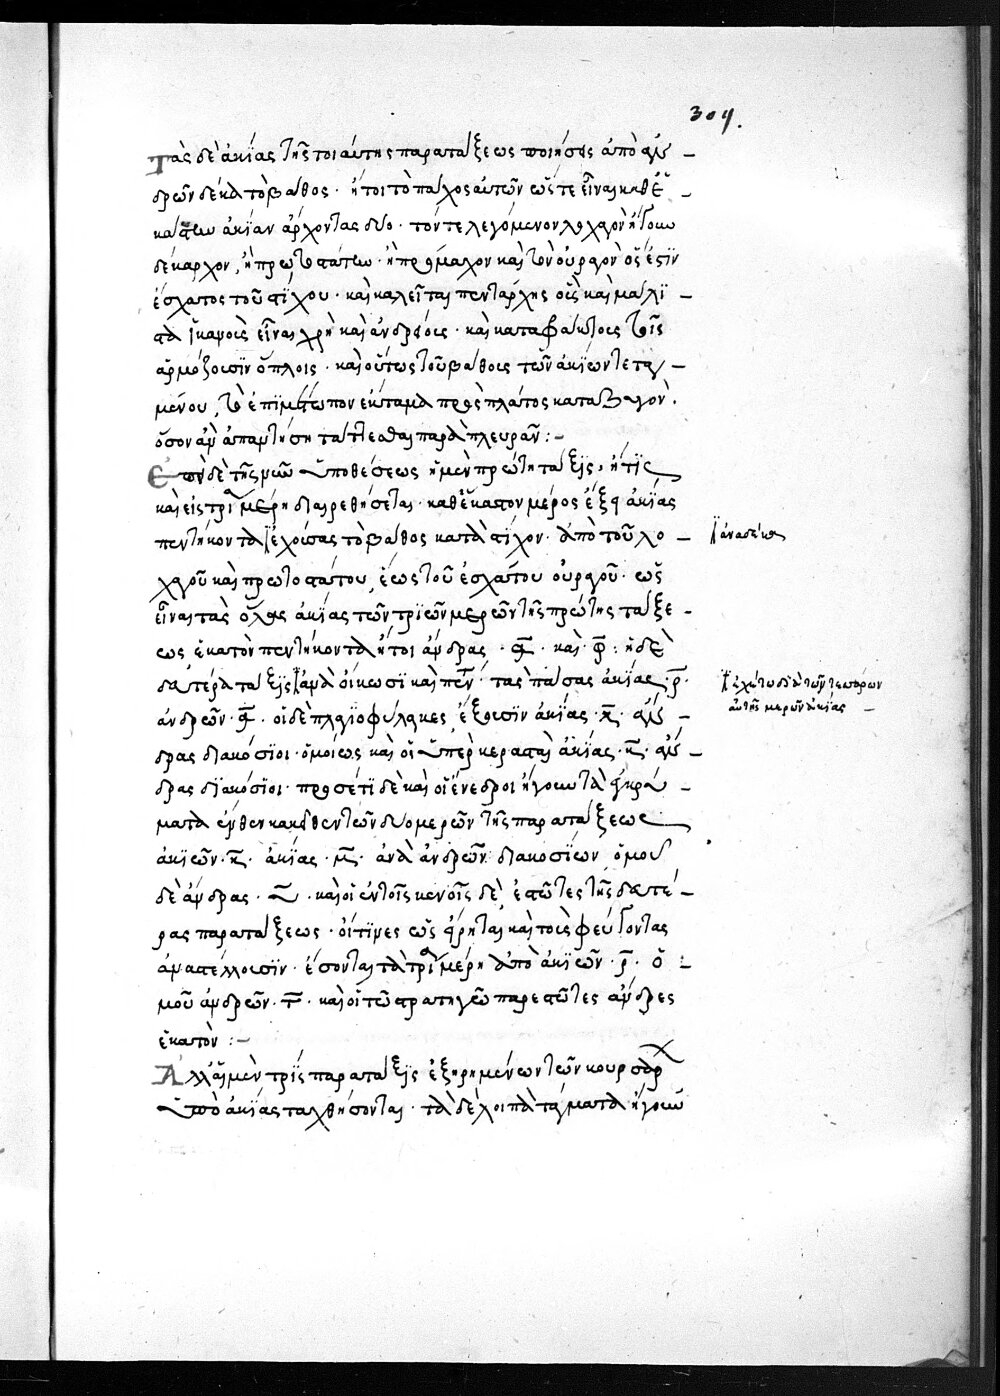 309.
Τὰς δὲ ἀκΐας τῆς τοιαύτης παρατάξεως ποιήσεις ἀπὸ ἀν –
δρῶν δέκα τὸ βάθος · ἤτοι τὸ πάχος αὐτῶν ὥστε εἶναι καθ' ἑ –
κάστην ἀκΐαν ἄρχοντας δύο · τόν τε λεγόμενον λοχαγὸν ἤγουν
δέκαρχον, ἢ πρωτοστάτην · ἢ πρόμαχον καὶ τὸν οὐραγὸν ὅς ἐστϊν
ἔσχατος τοῦ στΐχου · καὶ καλεῖται πεντάρχης οὓς καὶ μάλϊ –
στα ἱκανοὺς εἶναι χρὴ καὶ ἀνδρείους · καὶ καταφάκτους τοῖς
ἁρμόζουσϊν ὅπλοις · καὶ οὕτως τοῦ βάθους τῶν ἀκϊῶν τεταγ –
μένου, τὸ ἐπϊμέτωπον ἐκστάμα πρὸς πλάτος καταβαγὸν ·
ὅσον ἂν ἀπαιτήση τάττεσθαι παρὰ πλευρὰν : –
Ἐπὶ δὲ τῆς νῦν ὑποθέσεως ἡ μὲν πρώτη τάξϊς, ἥτϊς
καὶ εἰς τρία μέρη διαιρεθήσεται · καθ' ἕκαστον μέρος ἕξει ἀκΐας
πεντήκοντα ἐχούσας τὸ βάθος κατὰ στΐχον · ἀπὸ τοῦ λο –
χαγοῦ καὶ πρωτοστάτου, ἕως τοῦ ἐσχάτου οὐραγοῦ · ὡς
εἶναι τὰς ὅλας ἀκΐας τῶν τρϊῶν μερῶν τῆς πρώτης τάξε –
ως ἑκατὸν πεντήκοντα ἤτοι ἄνδρας · ͵α · καὶ · φ : ἡ δὲ
δευτέρα τάξϊς ἀνὰ εἴκοσϊ καὶ πέντε · τὰς πάσας ἀκΐας · ρ ·
ἀνδρῶν · ͵α · οἱ δὲ πλαγϊοφύλακες ἕξουσϊν ἀκΐας · κ · ἄν –
δρας διακόσϊοι · ὁμοίως καὶ οἱ ὑπερκερασταὶ ἀκΐας · κ · ἄν –
δρας δϊακόσϊοι · προσέτϊ δὲ καὶ οἱ ἔνεδροι ἤγουν τὰ ἔγκρύ –
ματα ἔνθεν κἀκεῖθεν τῶν δύο μερῶν τῆς παρατάξεως
ἀκϊῶν · κ · ἀκΐας · μ · ἀνὰ ἀνδρῶν διακοσΐων ὁμοῦ
δὲ ἄνδρας · υ · καὶ οἱ ἐν τοῖς κενοῖς δὲ ἑστῶτες τῆς δευτέ –
ρας παρατάξεως · οἵτϊνες ὡς εἴρηται καὶ τοὺς φεύγοντας
ἀναστέλλουσϊν · ἔσονται τὰ τρία μέρη ἀπὸ ἀκϊῶν · ρ · ὁ –
μοῦ ἀνδρῶν · τ · καὶ οἱ τῶ στρατηγῶ παρεστῶτες ἄνδρες
ἑκατὸν : –
Ἀλλ' αἱ μὲν τρεῖς παρατάξϊς ἐξηρημένων τῶν κουρσόρων
ὑπὸ ἀκΐας ταχθήσονται · τὰ δὲ λοιπὰ τάγματα ἤγουν
ἀνὰ δέκα
ἐχέτω διὰ τῶν τεσσάρων
αὐτῆς μερῶν ἀκΐας –